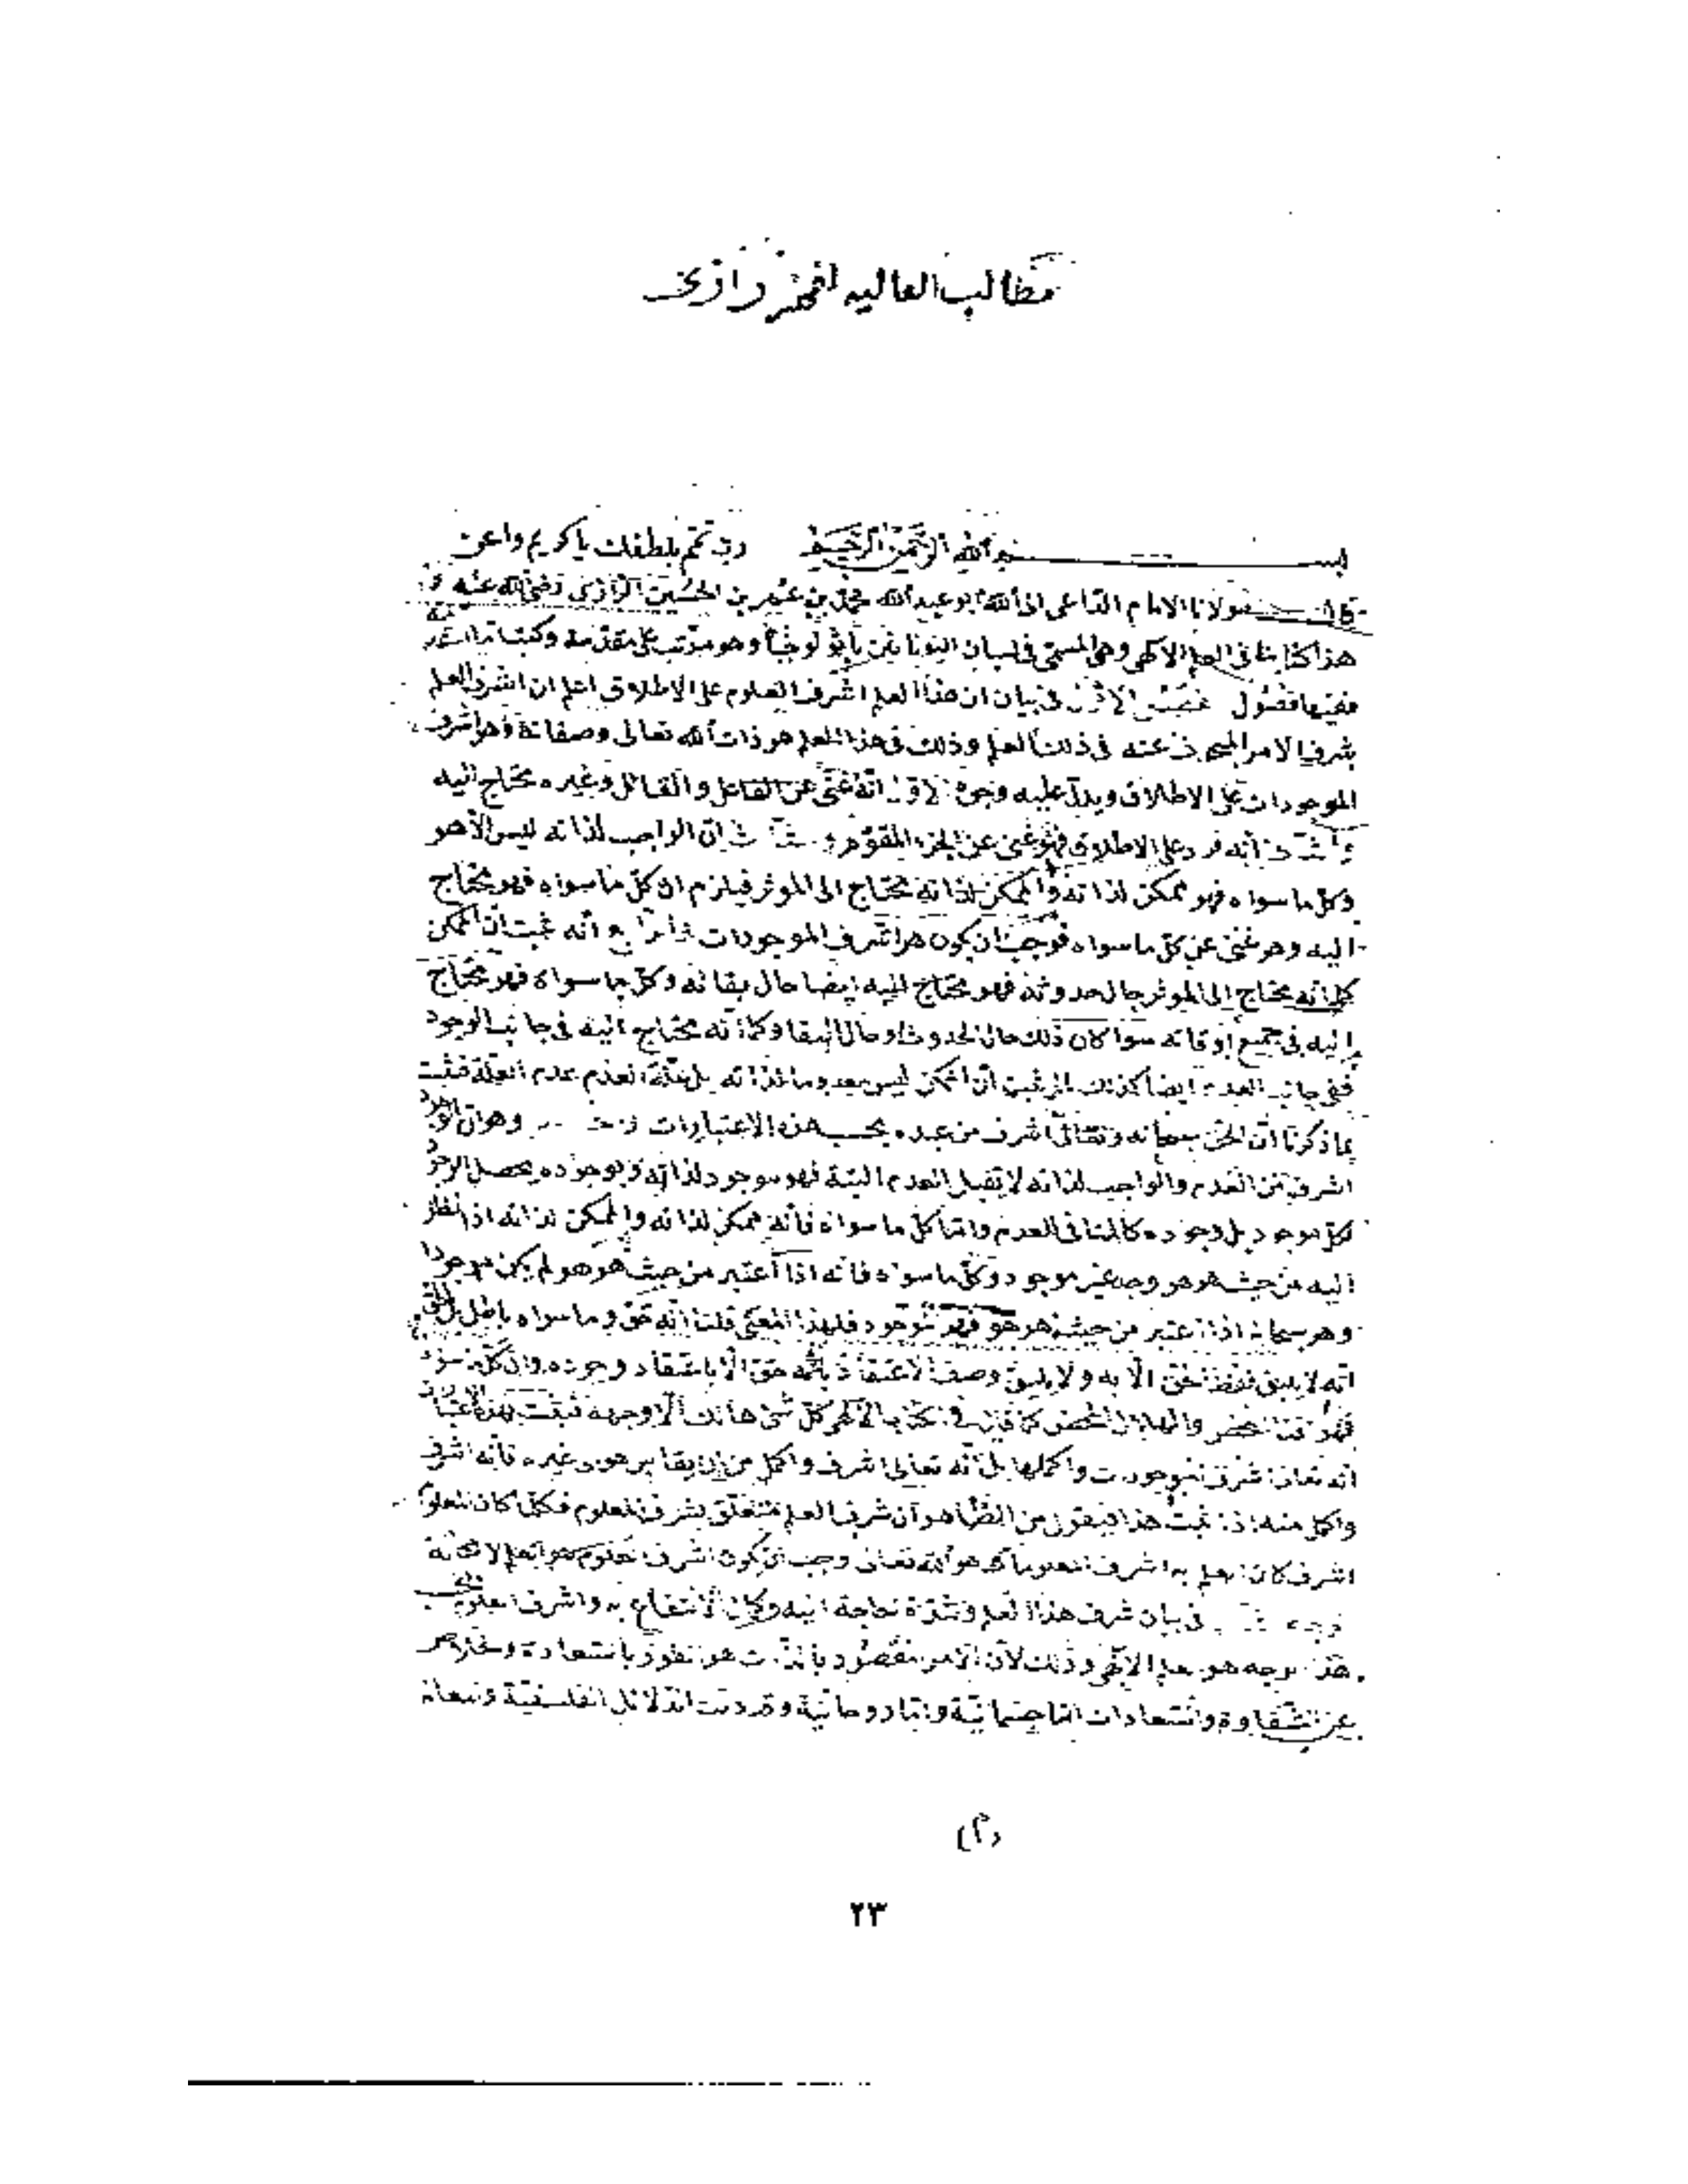 مطالب العاليه لفخر رازى
بسم الله الرحمن الرحيم رب تمم بلطفك يا كريم واعن
قال مولانا الامام الداعى الى الله ابو عبد الله محمد بن عمر بن الحسين الرازى رضى الله عنه
هذا كتابنا فى العلم الالهى وهو المسمى فى لسان اليونانيين باثولوجيا وهو مرتب على مقدمة وكتب اما
ففيها فصول الفصل الاول فى بيان ان هذا العلم اشرف العلوم على الاطلاق اعلم ان اشرف العلم
بشرف الامر المبحوث عنه فى ذلك العلم وذلك فى هذا العلم هو ذات الله تعالى وصفاته وهو اشرف
الموجودات على الاطلاق ويدل عليه وجوه الاول انه غنى عن الفاعل والقابل وغيره محتاج اليه
انه فرد على الاطلاق فهو غنى عن الجزء المقوم ان الواجب لذاته ليس الا هو
وكل ما سواه فهو ممكن لذاته والممكن لذاته محتاج الى الموثر فيلزم ان كل ما سواه فهو محتاج
اليه وهو غنى عن كل ما سواه فوجب ان يكون هو اشرف الموجودات الرابع انه ثبت ان الممكن
كما انه محتاج الى الموثر حال حدوثه فهو محتاج اليه ايضا حال بقائه وكل ما سواه فهو محتاج
اليه فى جميع اوقاته سوا كان ذلك حال الحدوث او حال البقا وكما انه محتاج اليه فى جانب الوجود
ففى جانب العدم ايضا كذلك لما ثبت ان الممكن ليس معدوما لذاته بل علة العدم عدم العلة فثبت
بما ذكرنا ان الحق سبحانه وتعالى اشرف من غيره بحسب هذه الاعتبارات وهو ان الوجود
اشرف من العدم والواجب لذاته لا يقبل العدم البتة فهو موجود لذاته وبوجوده يحصل الوجود
لكل موجود بل وجوده كالمنافى للعدم واما كل ما سواه فانه ممكن لذاته والممكن لذاته اذا نظر
اليه من حيث هو هو وجد غير موجود وكل ما سواه فانه اذا اعتبر من حيث هو هو لم يكن موجودا
وهو سبحانه اذا اعتبر من حيث هو هو فهو موجود فلهذا المعنى قلنا انه حق وما سواه باطل
انه لا يليق لفظ الحق الا به ولا يليق وصف الاعتقاد بانه حق الا باعتقاد وجوده وان كل ما سواه
والهلاك المحض كما قال فى الكتاب الالهى كل شئ هالك الا وجهه فثبت بهذا الاعتبار
انه تعالى اشرف الموجودات واكملها بل انه تعالى اشرف واكمل من ان يقال هو غيره فانه اشرف
واكمل منه اذا ثبت هذا فنقول من الظاهر ان شرف العلم متعلق بشرف المعلوم فكلما كان المعلوم
اشرف كان العلم به اشرف المعلومات هو الله تعالى وجب ان يكون اشرف العلوم هو العلم الالهى
فى بيان شرف هذا العلم وشدة الحاجة اليه وكمال الانتفاع به واشرف العلوم
هذا الوجه هو علم الالهى وذلك لان الامر المقصود بالذات هو الفوز بالسعادة والخلاص
عن الشقاوة والسعادات اما جسمانية واما روحانية وقد دلت الدلائل الفلسفية والمعالم
(٢)
٢٣